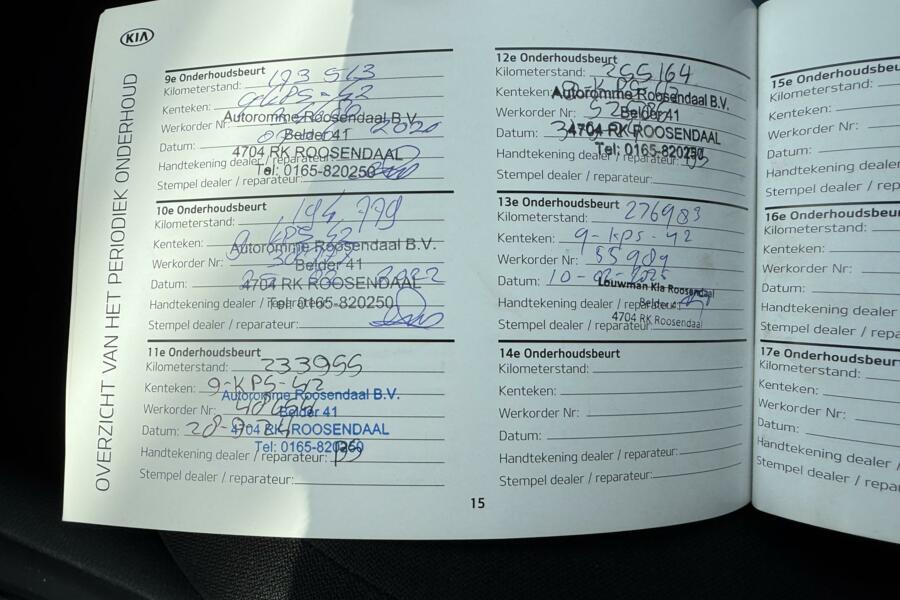 KIA
OVERZICHT VAN HET PERIODIEK ONDERHOUD
9e Onderhoudsbeurt
Kilometerstand: 193 513
Kenteken: 9-KPS-42
Werkorder Nr:
Autoromme Roosendaal B.V.
Datum: 2020
Belder 41
4704 RK ROOSENDAAL
Handtekening dealer / reparateur:
Tel: 0165-820250
Stempel dealer / reparateur:
10e Onderhoudsbeurt
Kilometerstand: 194 779
Kenteken: 9 KPS 42
Autoromme Roosendaal B.V.
Werkorder Nr:
Belder 41
Datum: 2022
4704 RK ROOSENDAAL
Handtekening dealer / reparateur:
Tel: 0165-820250
Stempel dealer / reparateur:
11e Onderhoudsbeurt
Kilometerstand: 233955
Kenteken: 9-KPS-42
Autoromme Roosendaal B.V.
Werkorder Nr:
Belder 41
Datum: 28-9-
4704 RK ROOSENDAAL
Tel: 0165-820250
Handtekening dealer / reparateur:
Stempel dealer / reparateur:
12e Onderhoudsbeurt
Kilometerstand: 255164
Kenteken:
Autoromme Roosendaal B.V.
Werkorder Nr:
Belder 41
Datum:
4704 RK ROOSENDAAL
Handtekening dealer / reparateur:
Tel: 0165-820250
Stempel dealer / reparateur:
13e Onderhoudsbeurt
Kilometerstand: 276983
Kenteken: 9-kps-42
Werkorder Nr: 55989
Datum: 10-02-2025
Louwman Kia Roosendaal
Handtekening dealer / reparateur:
Belder 41
4704 RK Roosendaal
Stempel dealer / reparateur:
14e Onderhoudsbeurt
Kilometerstand:
Kenteken:
Werkorder Nr:
Datum:
Handtekening dealer / reparateur:
Stempel dealer / reparateur:
15
15e Onderhoudsbeu
Kilometerstand:
Kenteken:
Werkorder Nr:
Datum:
Handtekening dealer
Stempel dealer / repa
16e Onderhoudsbeu
Kilometerstand:
Kenteken:
Werkorder Nr:
Datum:
Handtekening dealer
Stempel dealer / repa
17e Onderhoudsbeur
Kilometerstand:
Kenteken:
Werkorder Nr:
Datum:
Handtekening dealer /
Stempel dealer / repa